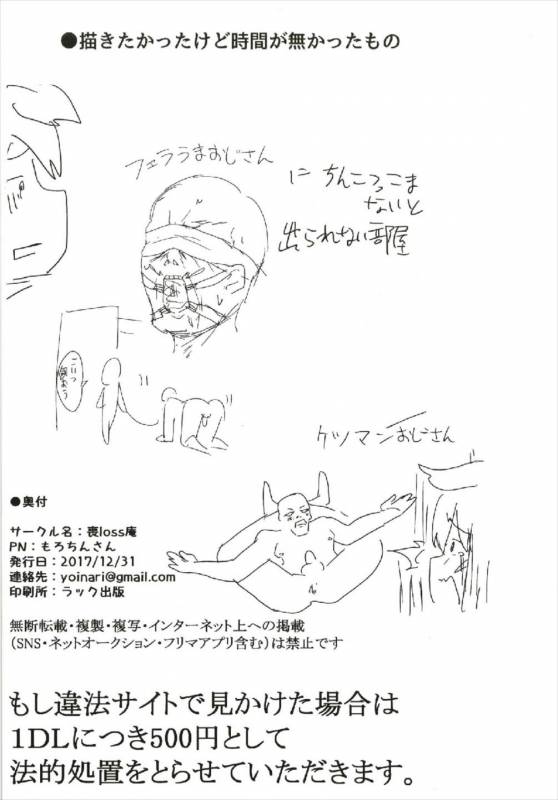 ●描きたかったけど時間が無かったもの
フェラうまおじさん
に ちんこつっこま
ないと
出られない部屋
ケツマンおじさん
●奥付
サークル名：喪loss庵
PN：もろちんさん
発行日：2017/12/31
連絡先：yoinari@gmail.com
印刷所：ラック出版
無断転載・複製・複写・インターネット上への掲載
（SNS・ネットオークション・フリマアプリ含む）は禁止です
もし違法サイトで見かけた場合は
1DLにつき500円として
法的処置をとらせていただきます。